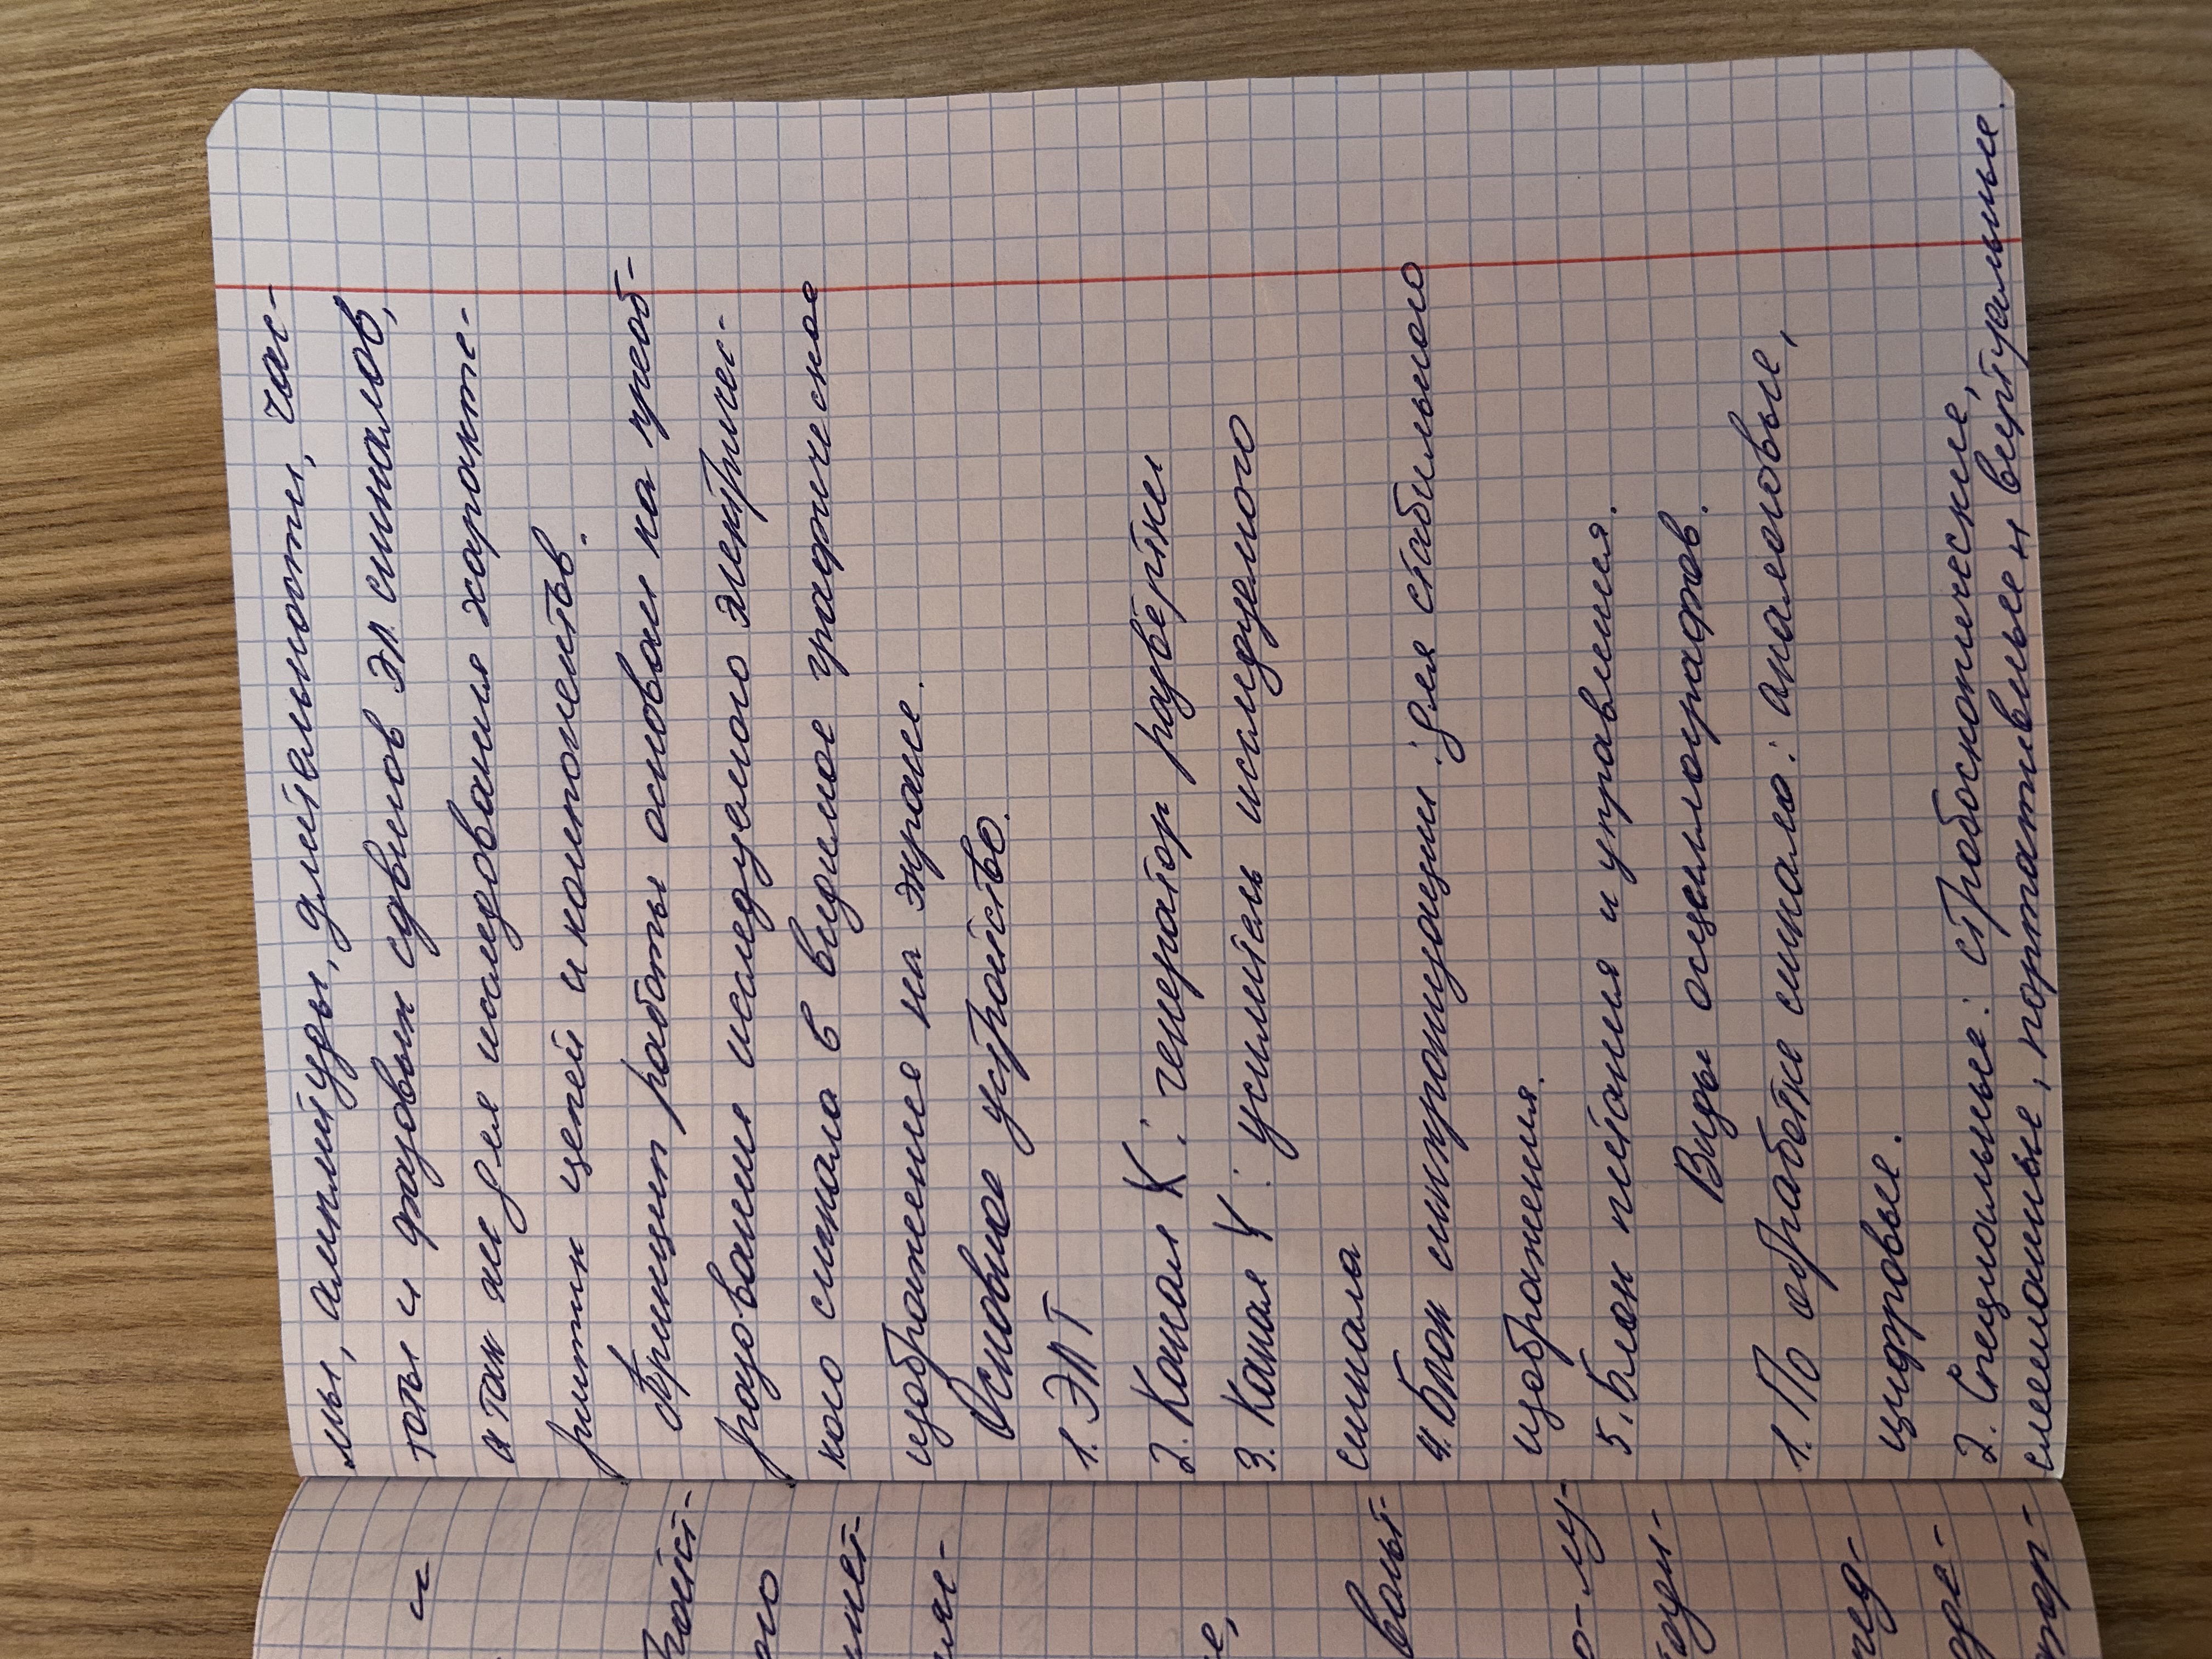 мы, амплитуды, длительности, час-
тоты и фазовых сдвигов эл. сигналов,
а так же для исследования характе-
ристик цепей и компонентов.
Принцип работы основан на преоб-
разовании исследуемого электричес-
кого сигнала в видимое графическое
изображение на экране.
Основное устройство.
1. ЭЛТ
2. Канал X: генератор развертки
3. Канал Y: усилитель исследуемого
сигнала
4. Блок синхронизации: для стабильного
изображения.
5. Блок питания и управления.
Виды осциллографов.
1. По обработке сигнала: аналоговые,
цифровые.
2. Специальные: стробоскопические,
смешанные, портативные и виртуальные.
и
вольт-